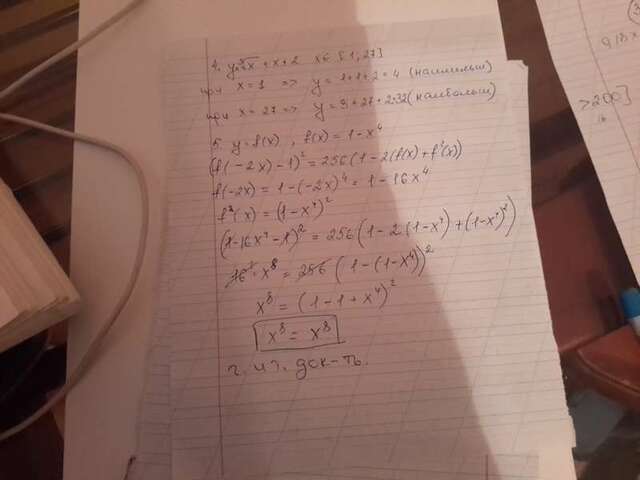 4. y=∛x + x + 2 x∈[1, 27]
при x=1 => y=1+1+2=4 (наименьш)
при x=27 => y=3+27+2=32 (наибольш)
5. y=f(x), f(x)=1-x⁴
(f(-2x)-1)²=256(1-2(f(x)+f²(x))
f(-2x)=1-(-2x)⁴=1-16x⁴
f²(x)=(1-x⁴)²
(1-16x⁴-1)²=256(1-2(1-x⁴)+(1-x⁴)²)
16²·x⁸=256(1-(1-x⁴))²
x⁸=(1-1+x⁴)²
x⁸=x⁸
ч. и т. док-ть.
>200]
16
(3
918x